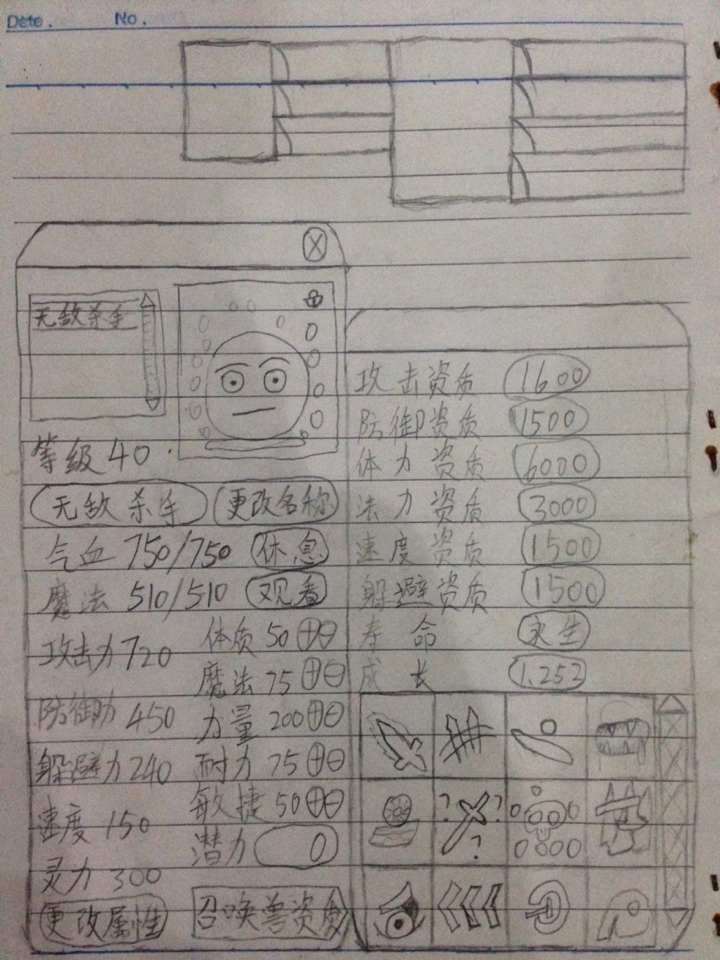 Date. No.
无敌杀手
等级40
无敌杀手 更改名称
气血 750/750 休息
魔法 510/510 观看
攻击力720 体质 50
魔法 75
防御力 450 力量 200
躲避力240 耐力 75
敏捷 50
速度 150
潜力 0
灵力 300
更改属性 召唤兽资质
攻击资质 1600
防御资质 1500
体力资质 6000
法力资质 3000
速度资质 1500
躲避资质 1500
寿命 永生
成长 1.252
? ? ?